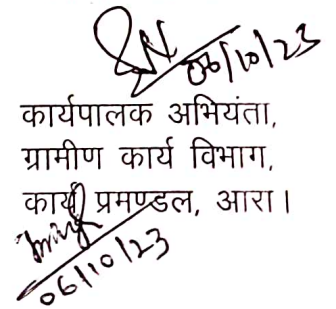 06/10/23
कार्यपालक अभियंता,
ग्रामीण कार्य विभाग,
कार्य प्रमण्डल, आरा।
06/10/23